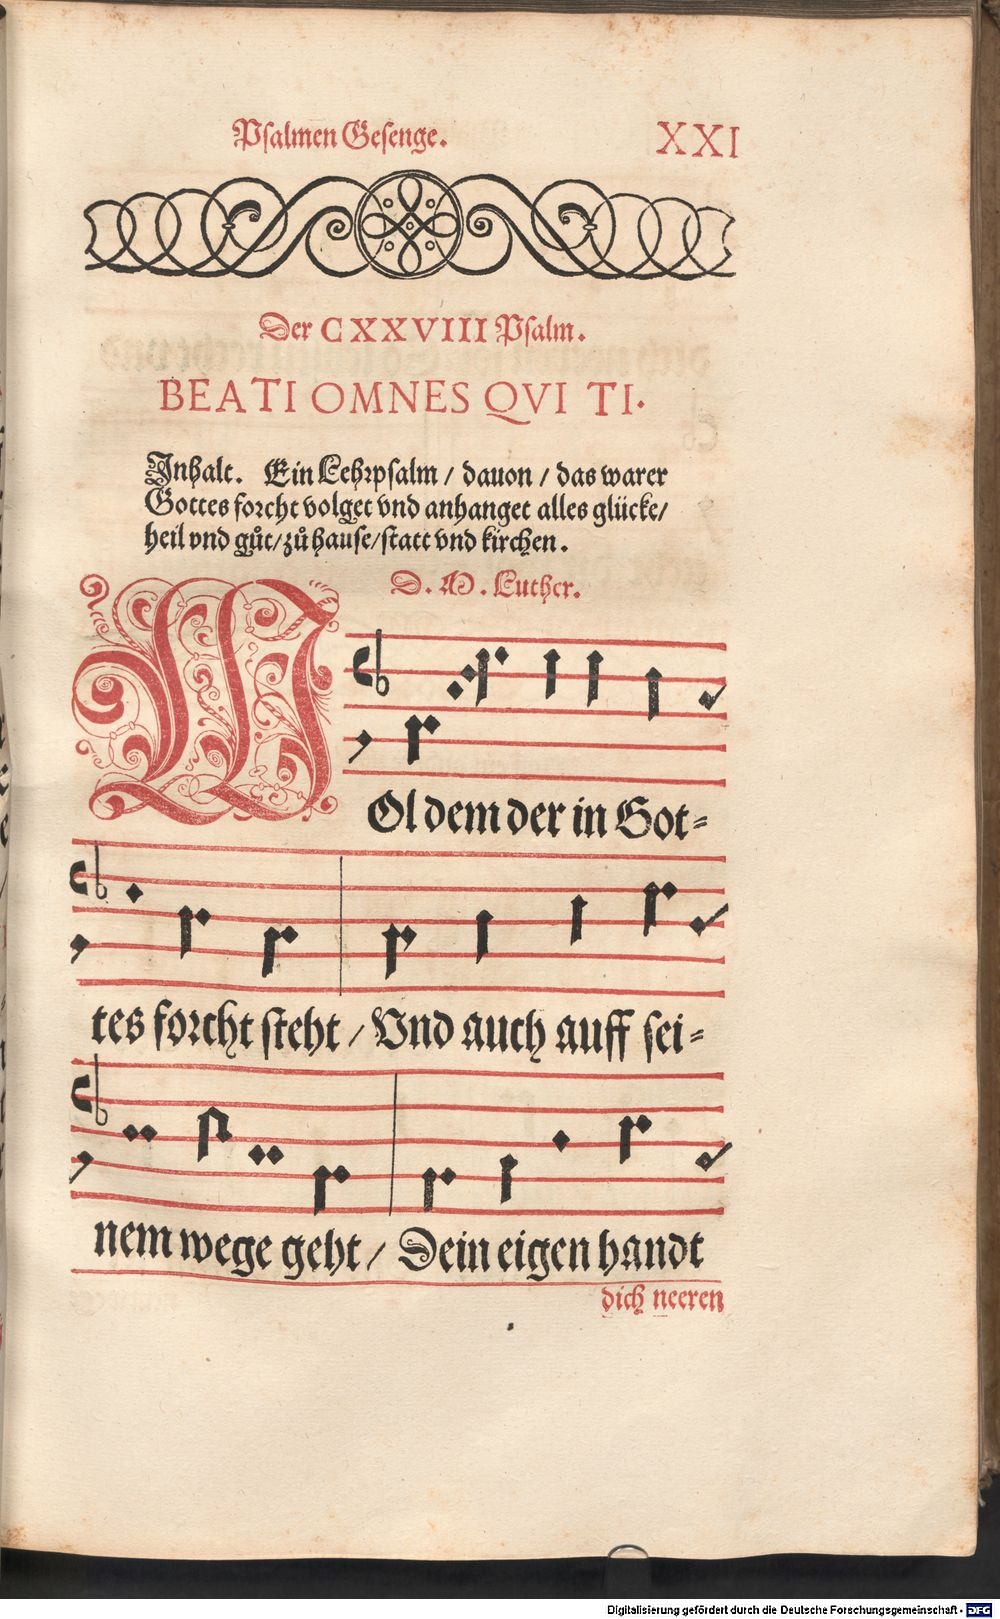 Psalmen Gesenge. XXI
Der CXXVIII Psalm.
BEATI OMNES QVI TI.
Inhalt. Ein Lehrpsalm / dauon / das warer
Gottes forcht volget vnd anhanget alles glücke/
heil vnd gůt/zů hause/statt vnd kirchen.
D. M. Luther.
WOl dem der in Got-
tes forcht steht / Vnd auch auff sei-
nem wege geht / Dein eigen handt
dich neeren
Digitalisierung gefördert durch die Deutsche Forschungsgemeinschaft - DFG